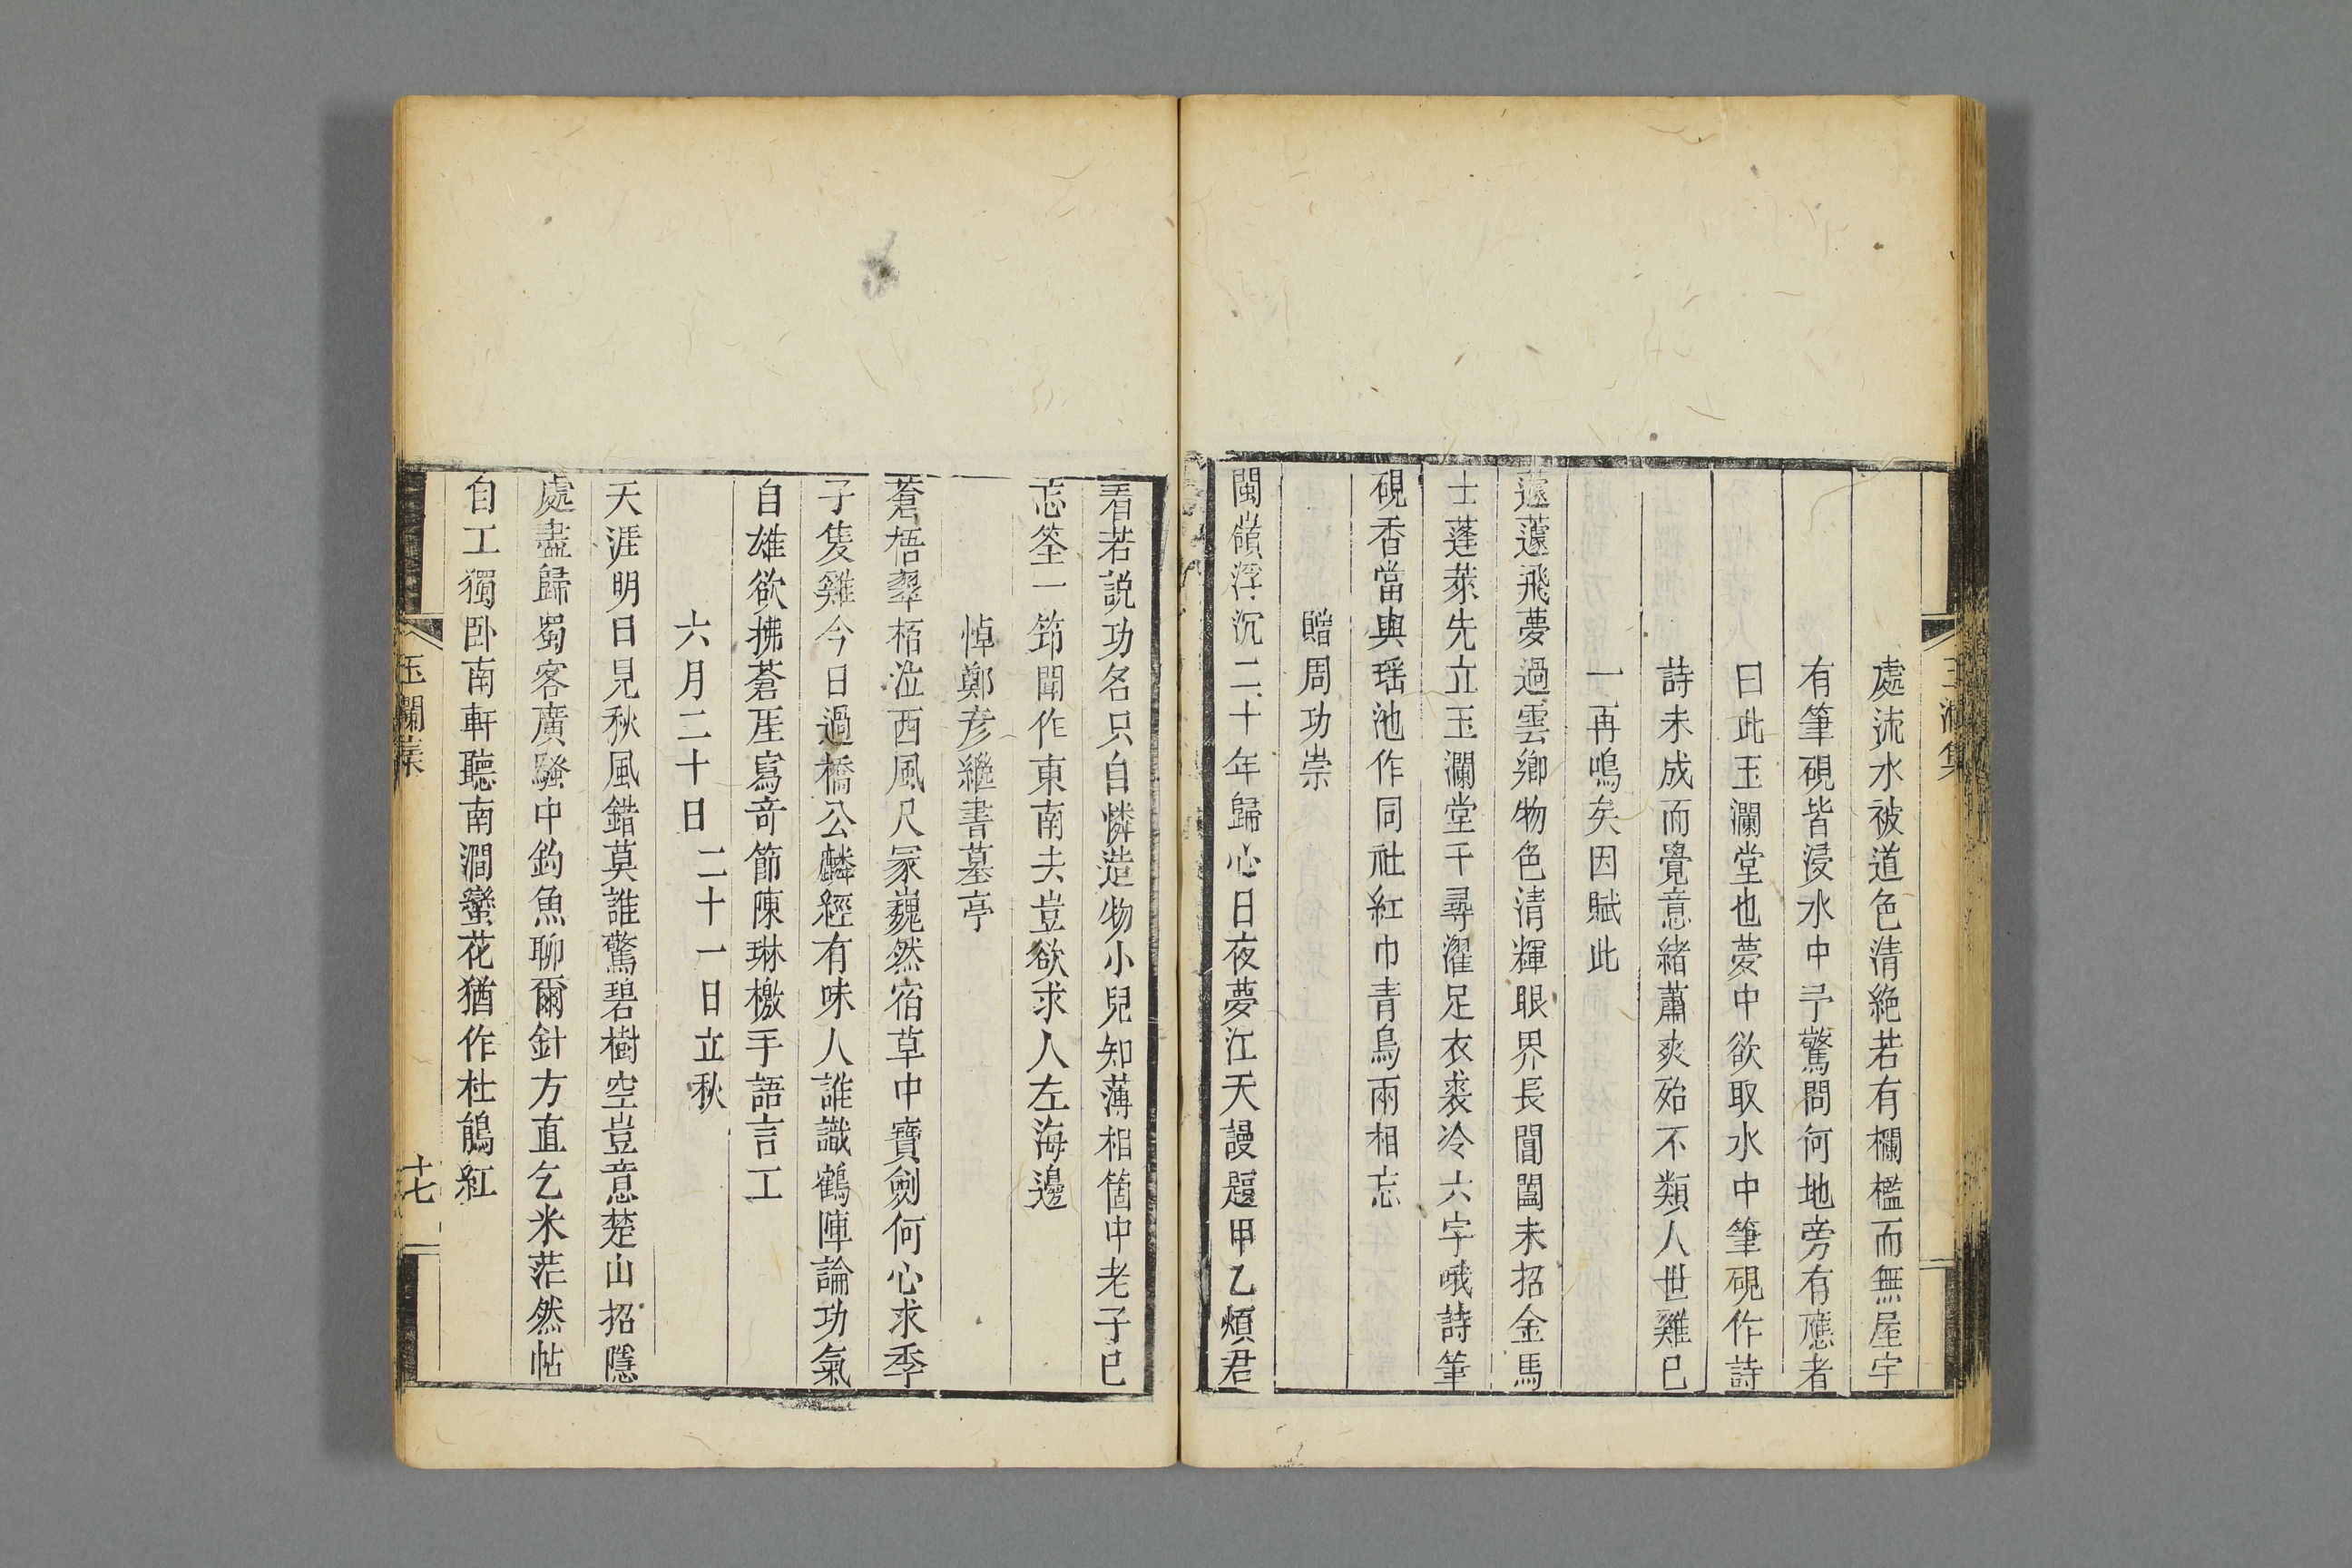 玉瀾集
處流水被道色清絶若有欄檻而無屋宇
有筆硯皆浸水中予驚問何地旁有應者
曰此玉瀾堂也夢中欲取水中筆硯作詩
詩未成而覺意緒蕭爽殆不類人世雞已
一再鳴矣因賦此
蘧蘧飛夢過雲鄉物色清輝眼界長閶闔未招金馬
士蓬萊先立玉瀾堂千尋濯足衣裘冷六字哦詩筆
硯香當與瑶池作同社紅巾青鳥兩相忘
贈周功崇
閩嶺浮沉二十年歸心日夜夢江天謾題甲乙煩君
看若説功名只自憐造物小兒知薄相箇中老子已
忘筌一笻聞作東南去豈欲求人左海邊
悼鄭彦繼書墓亭
蒼梧翠栢泣西風尺冢巍然宿草中寶劍何心求季
子隻雞今日過橋公麟經有味人誰識鶴陣論功氣
自雄欲拂蒼崖寫奇節陳琳檄手語言工
六月二十日 二十一日立秋
天涯明日見秋風錯莫誰驚碧樹空豈意楚山招隱
處盡歸蜀客廣騷中釣魚聊爾針方直乞米茫然帖
自工獨卧南軒聽南澗蠻花猶作杜鵑紅
玉瀾集
十七